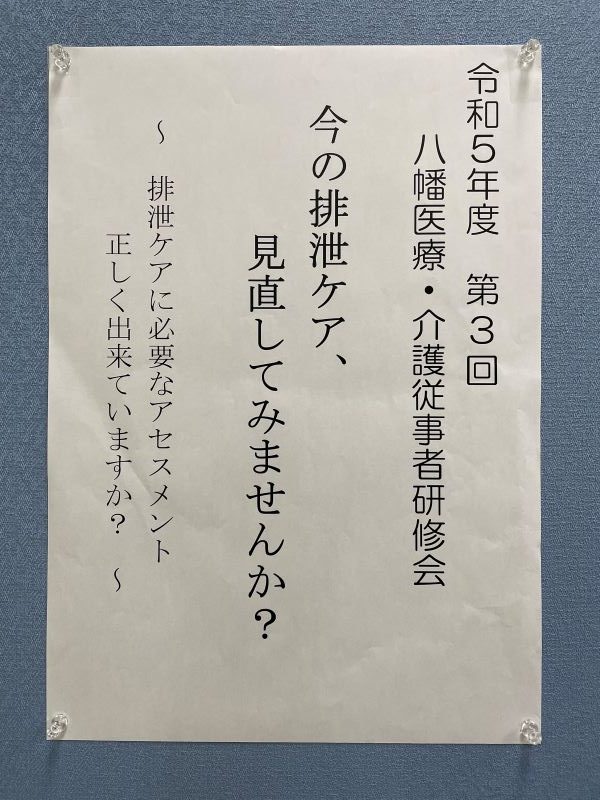 令和5年度　第3回
八幡医療・介護従事者研修会
今の排泄ケア、
見直してみませんか？
～　排泄ケアに必要なアセスメント
正しく出来ていますか？　～